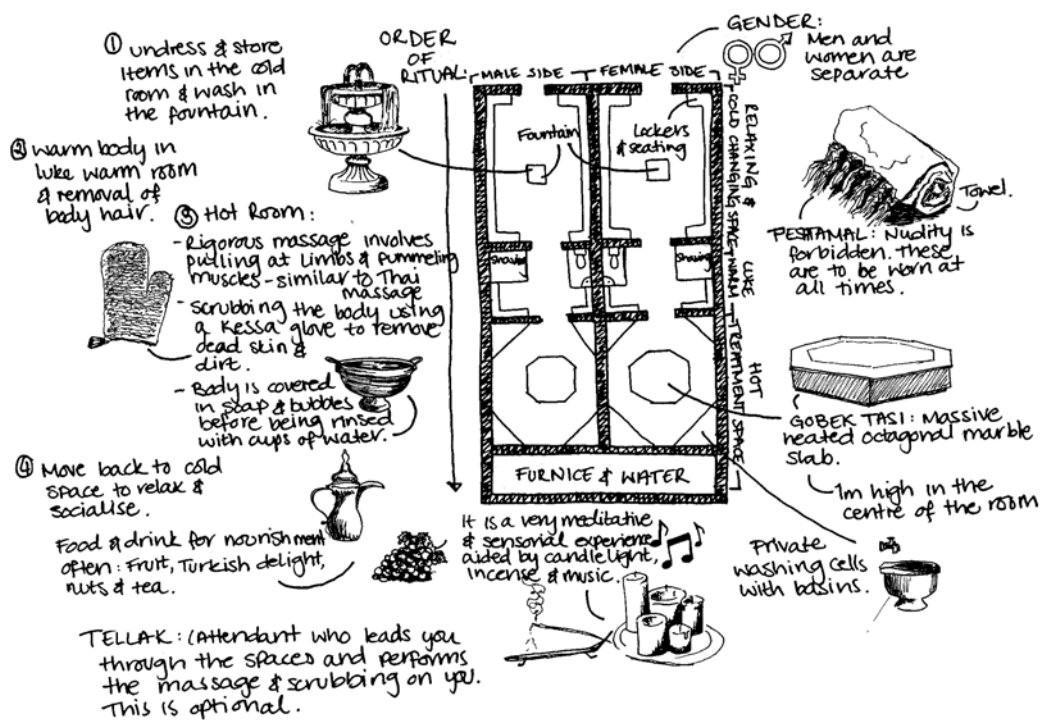 ① undress & store
items in the cold
room & wash in
the fountain.
② warm body in
luke warm room
& removal of
body hair.
③ Hot Room:
- Rigorous massage involves
pulling at limbs & pummeling
muscles - similar to Thai
massage
- Scrubbing the body using
a kessa glove to remove
dead skin &
dirt.
- Body is covered
in soap & bubbles
before being rinsed
with cups of water.
④ Move back to cold
space to relax &
socialise.
Food & drink for nourishment
often: Fruit, Turkish delight,
nuts & tea.
TELLAK: (Attendant who leads you
through the spaces and performs
the massage & scrubbing on you.
This is optional.
ORDER
OF
RITUAL:
MALE SIDE
FEMALE SIDE
Fountain
Lockers
& seating
Shaving
Shaving
FURNICE & WATER
RELAXING &
COLD CHANGING SPACE
LUKE
WARM
HOT
TREATMENT SPACE
It is a very meditative
& sensorial experience
aided by candlelight,
incense & music.
GENDER:
Men and
women are
separate
Towel.
PESHTAMAL: Nudity is
forbidden. These
are to be worn at
all times.
GOBEK TASI: Massive
heated octagonal marble
slab.
1m high in the
centre of the room
Private
washing cells
with basins.